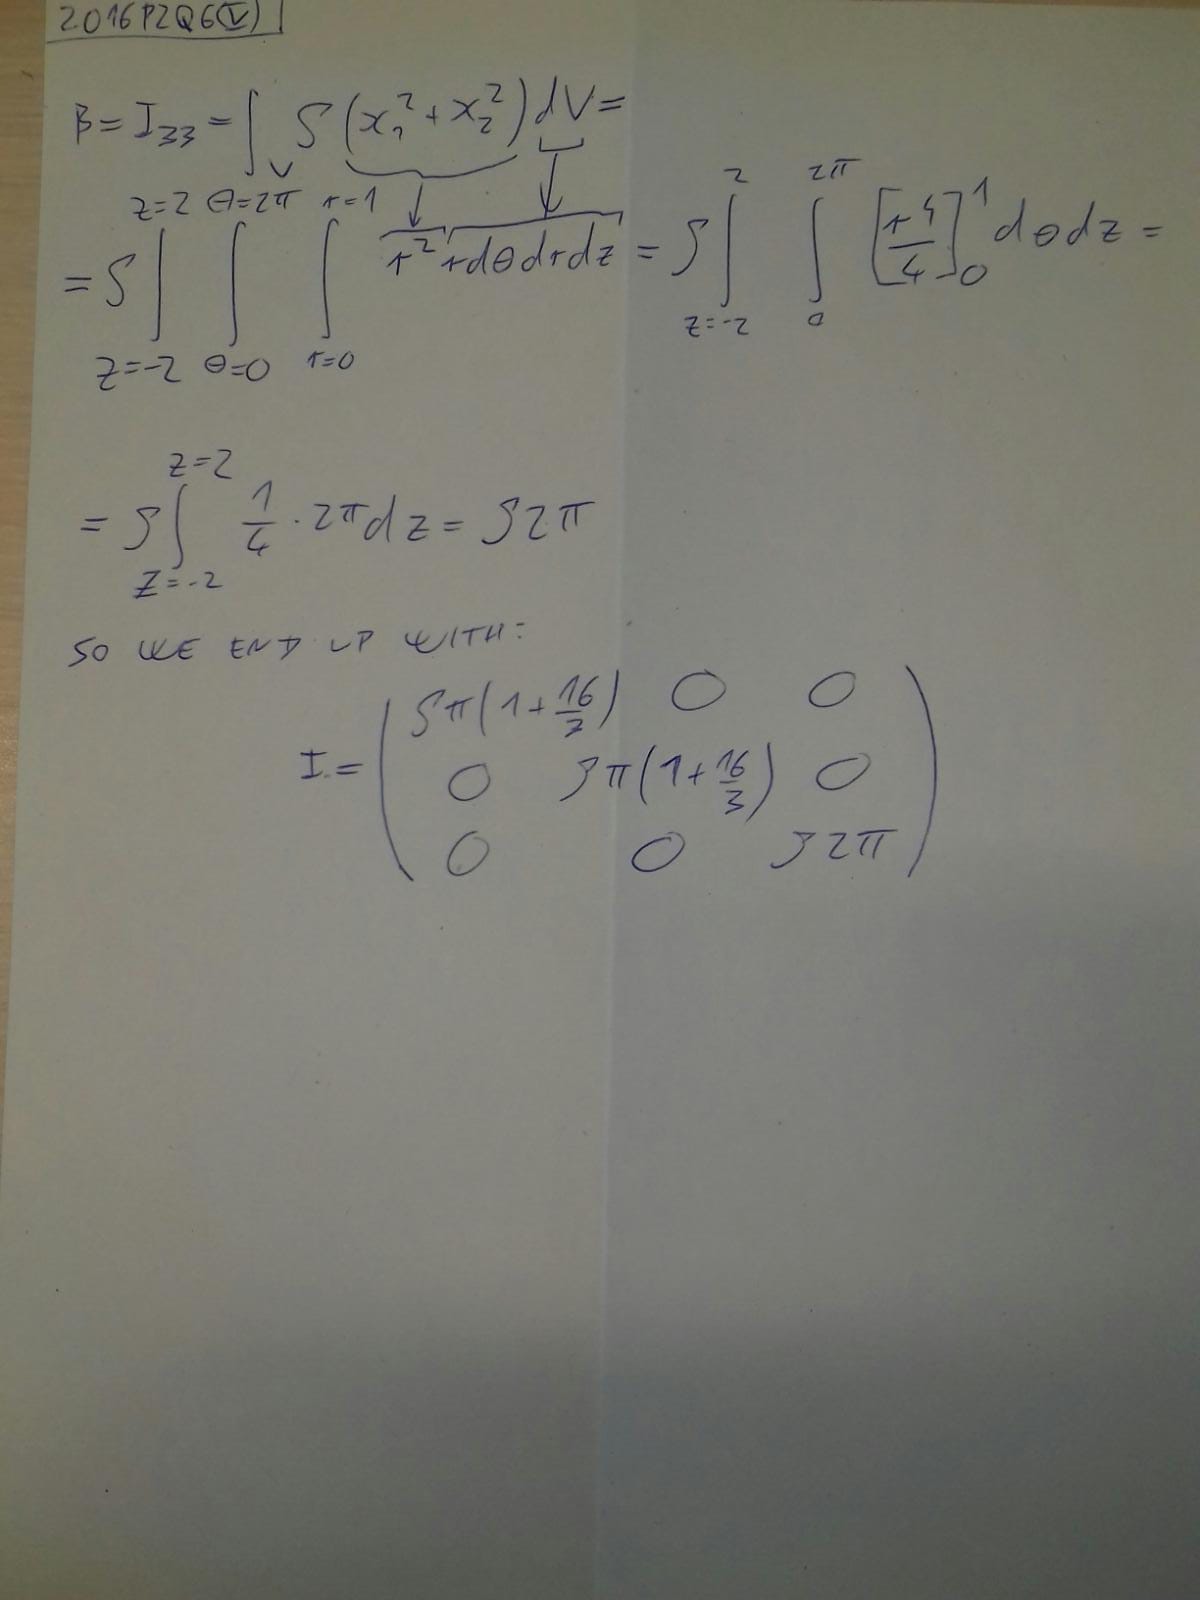 2016P2Q6(V)
β = I₃₃ = ∫_V ρ (x₁² + x₂²) dV =
= ρ ∫_{z=-2}^{z=2} ∫_{θ=0}^{θ=2π} ∫_{r=0}^{r=1} r² r dθ dr dz = ρ ∫_{z=-2}^{2} ∫_0^{2π} [r⁴/4]_0^1 dθ dz =
= ρ ∫_{z=-2}^{z=2} 1/4 · 2π dz = ρ2π
SO WE END UP WITH:
I = ( ρπ(1+16/3) 0 0
0 ρπ(1+16/3) 0
0 0 ρ2π )